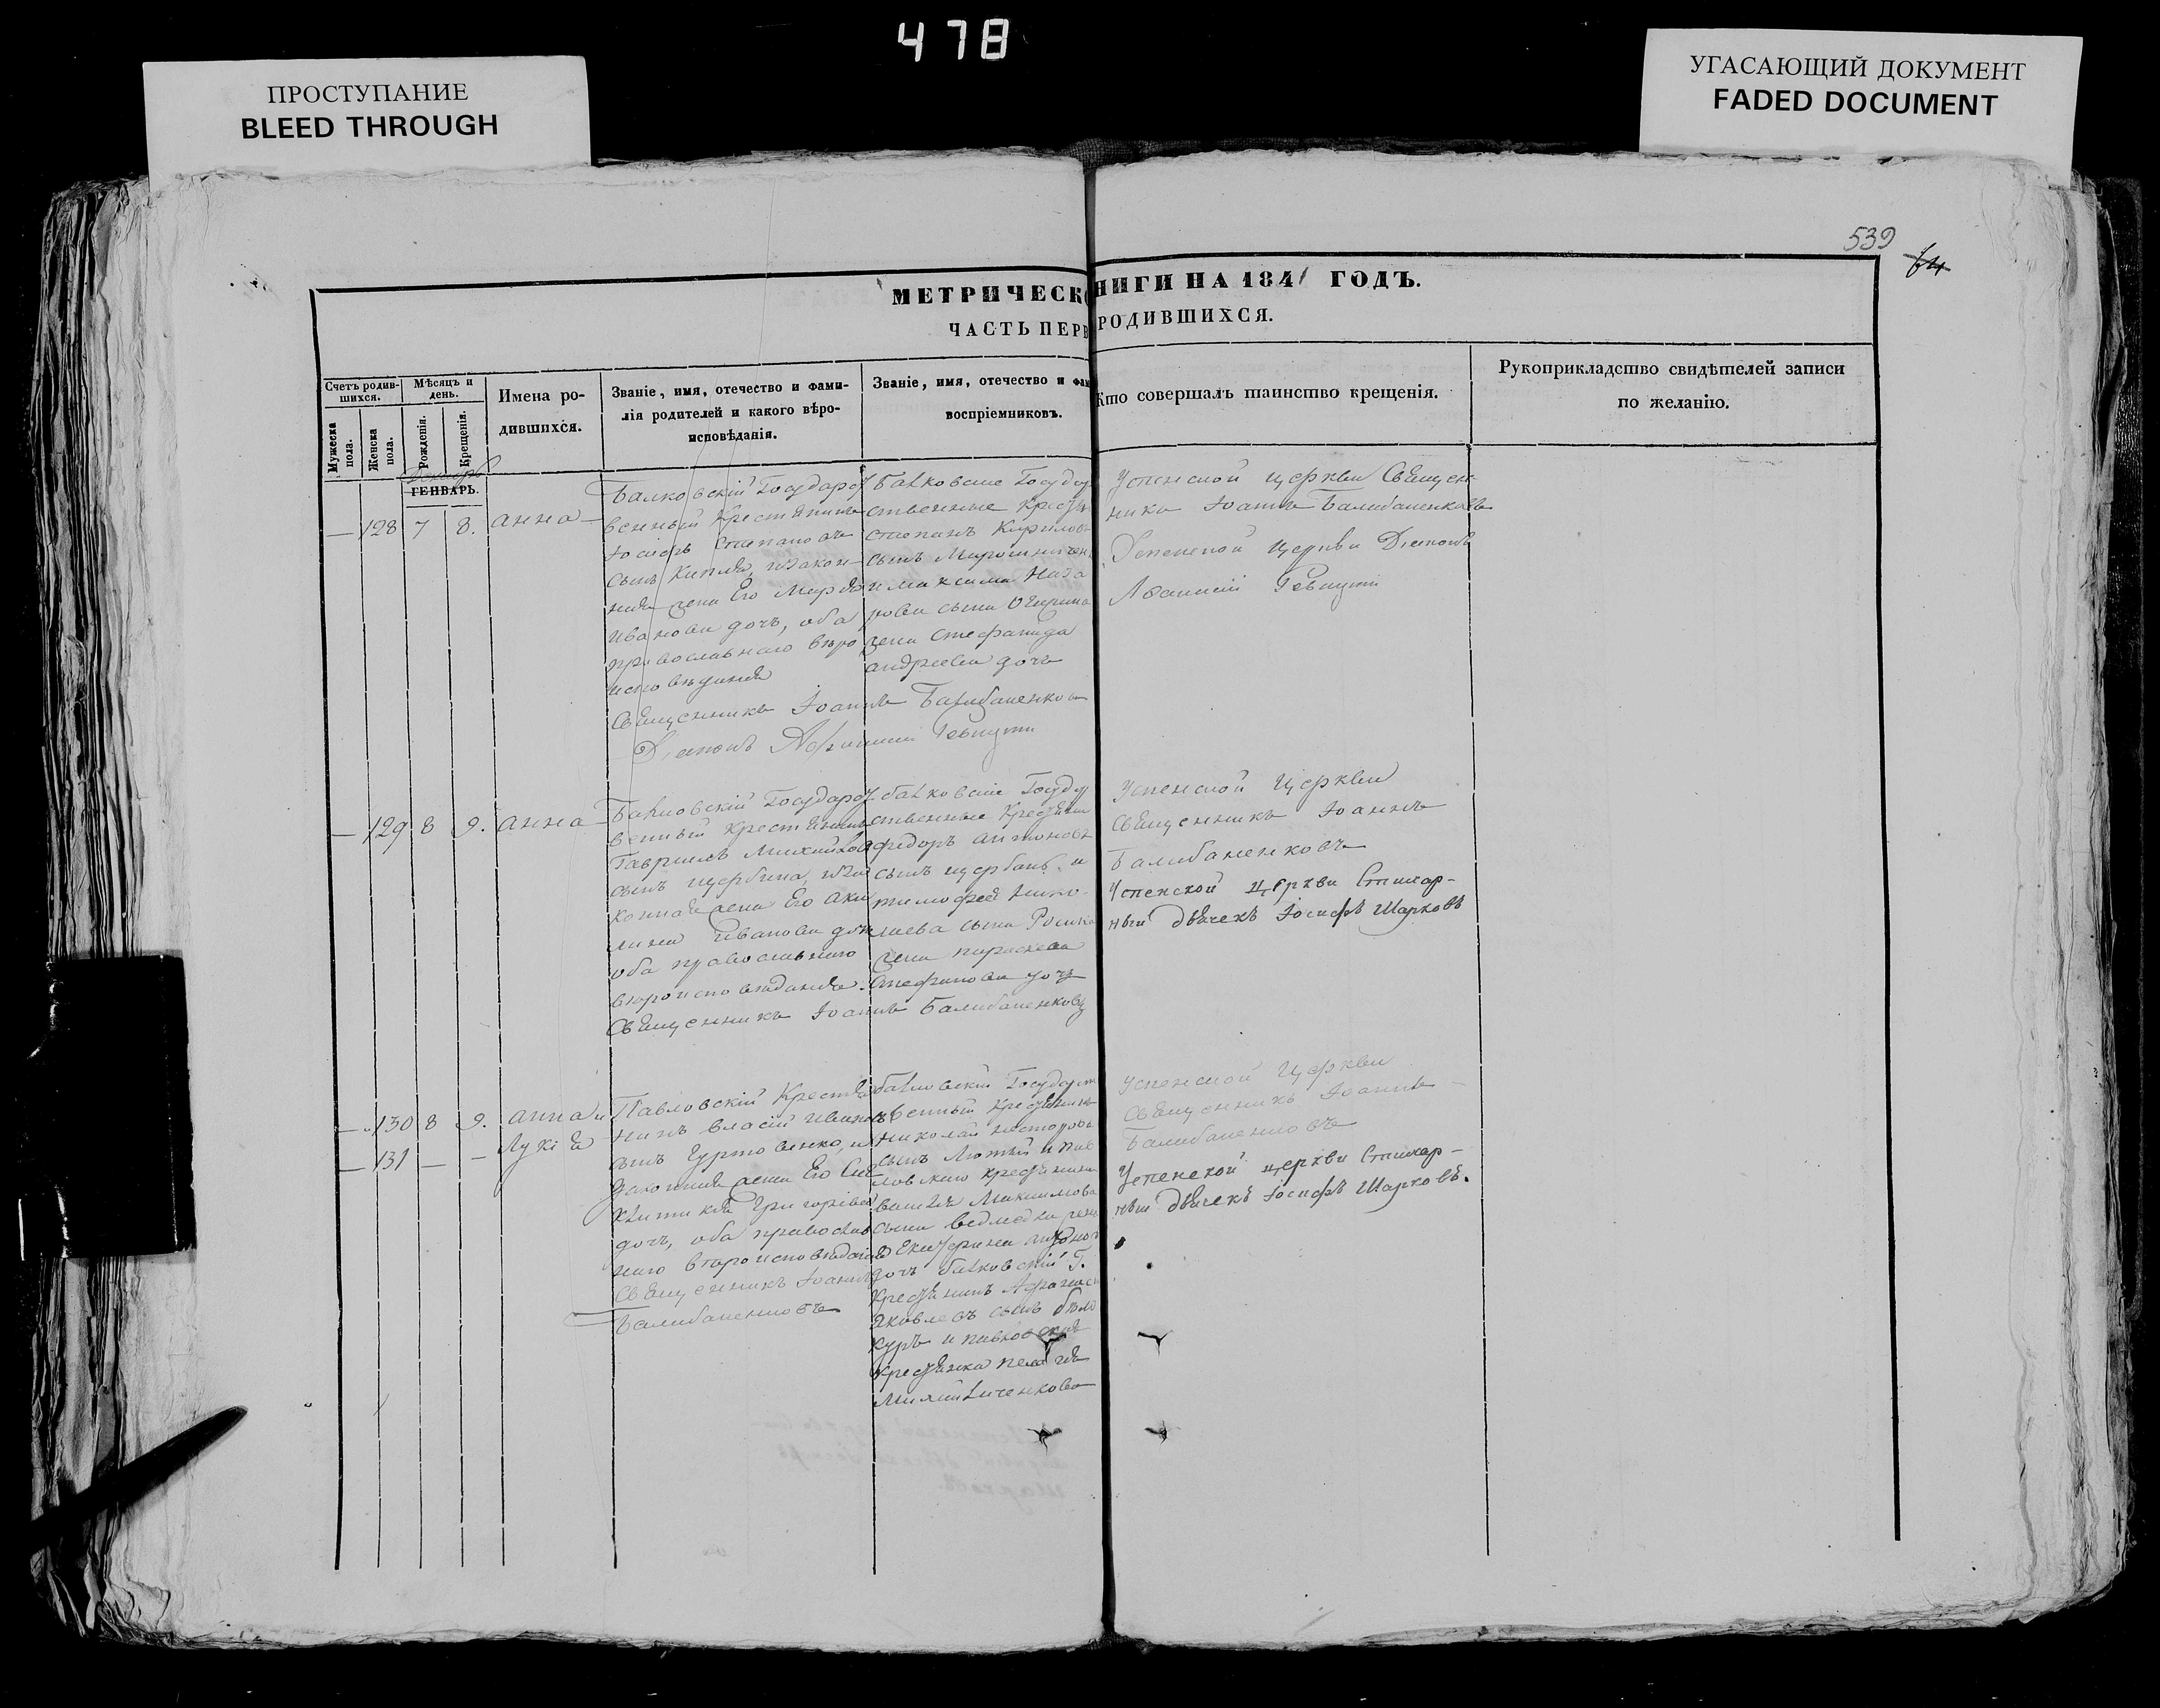 478
ПРОСТУПАНИЕ
BLEED THROUGH
УГАСАЮЩИЙ ДОКУМЕНТ
FADED DOCUMENT
539
64
МЕТРИЧЕСКО НИГИ НА 1841 ГОДЪ.
ЧАСТЬ ПЕРВ РОДИВШИХСЯ.
Счетъ родив-
шихся.
Мужеска
пола.
Женска
пола.
Мѣсяцъ и
день.
Рожденія.
Крещенія.
Имена ро-
дившихся.
Званіе, имя, отечество и фами-
лія родителей и какого вѣро-
исповѣданія.
Званіе, имя, отечество и фам
воспріемниковъ.
Кто совершалъ таинство крещенія.
Рукоприкладство свидѣтелей записи
по желанію.
Декабрь
ГЕНВАРЬ.
— 128 7 8.
анна
Балковскій Государст
венный Крестьянинъ
Іосифъ Степановъ
сынъ
жена Его Марія
Иванова дочь, оба
православнаго вѣро
исповѣданія
Священникъ Іоаннъ Балабаненковъ
Діаконъ
Балковскіе Государ
ственные Крестья
Степанъ Кириловъ
сынъ
и Максима Наза
рова сына
жена Стефанида
андреева дочь
Успенской церкви Священ
никъ Іоаннъ Балабаненковъ
Успенской Церкви Діаконъ
— 129 8 9.
анна
Балковскій Государст
венный Крестьянинъ
Гавріилъ Михайловъ
сынъ Щербина, иЗа
конная жена Его Аки
лина Иванова дочь
оба православнаго
вѣроисповѣданія.
Священникъ Іоаннъ Балабаненковъ
балковскіе Государ
ственные Крестьяни
федоръ антоновъ
сынъ щербань и
тимофея Нико
лаева сына
жена параскева
дочь
Успенской Церкви
Священникъ Іоаннъ
Балабаненковъ
Успенской церкви Стихар-
ный дьячекъ Іосифъ Шарковъ
— 130 8 9.
— 131 — —
анна и
Лукія
Павловскій Крестья
нинъ власій Ивановъ
сынъ
Законная жена Его
Григоріева
дочь, оба православ
наго вѣроисповѣданія
Священникъ Іоаннъ
Балабаненковъ
балковскій Государст
венный Крестьянинъ
Николай Несторовъ
сынъ Лютый и пав
ловскаго крестьянина
Максимова
сына ведмедя жена
Екатерина
дочь балковскій Г.
Крестьянинъ Афанасій
Яковлевъ сынъ бѣло
куръ и павловская
Крестьянка пелагія
Успенской Церкви
Священникъ Іоаннъ
Балабаненковъ
Успенской церкви Стихар-
ный дьячекъ Іосифъ Шарковъ.